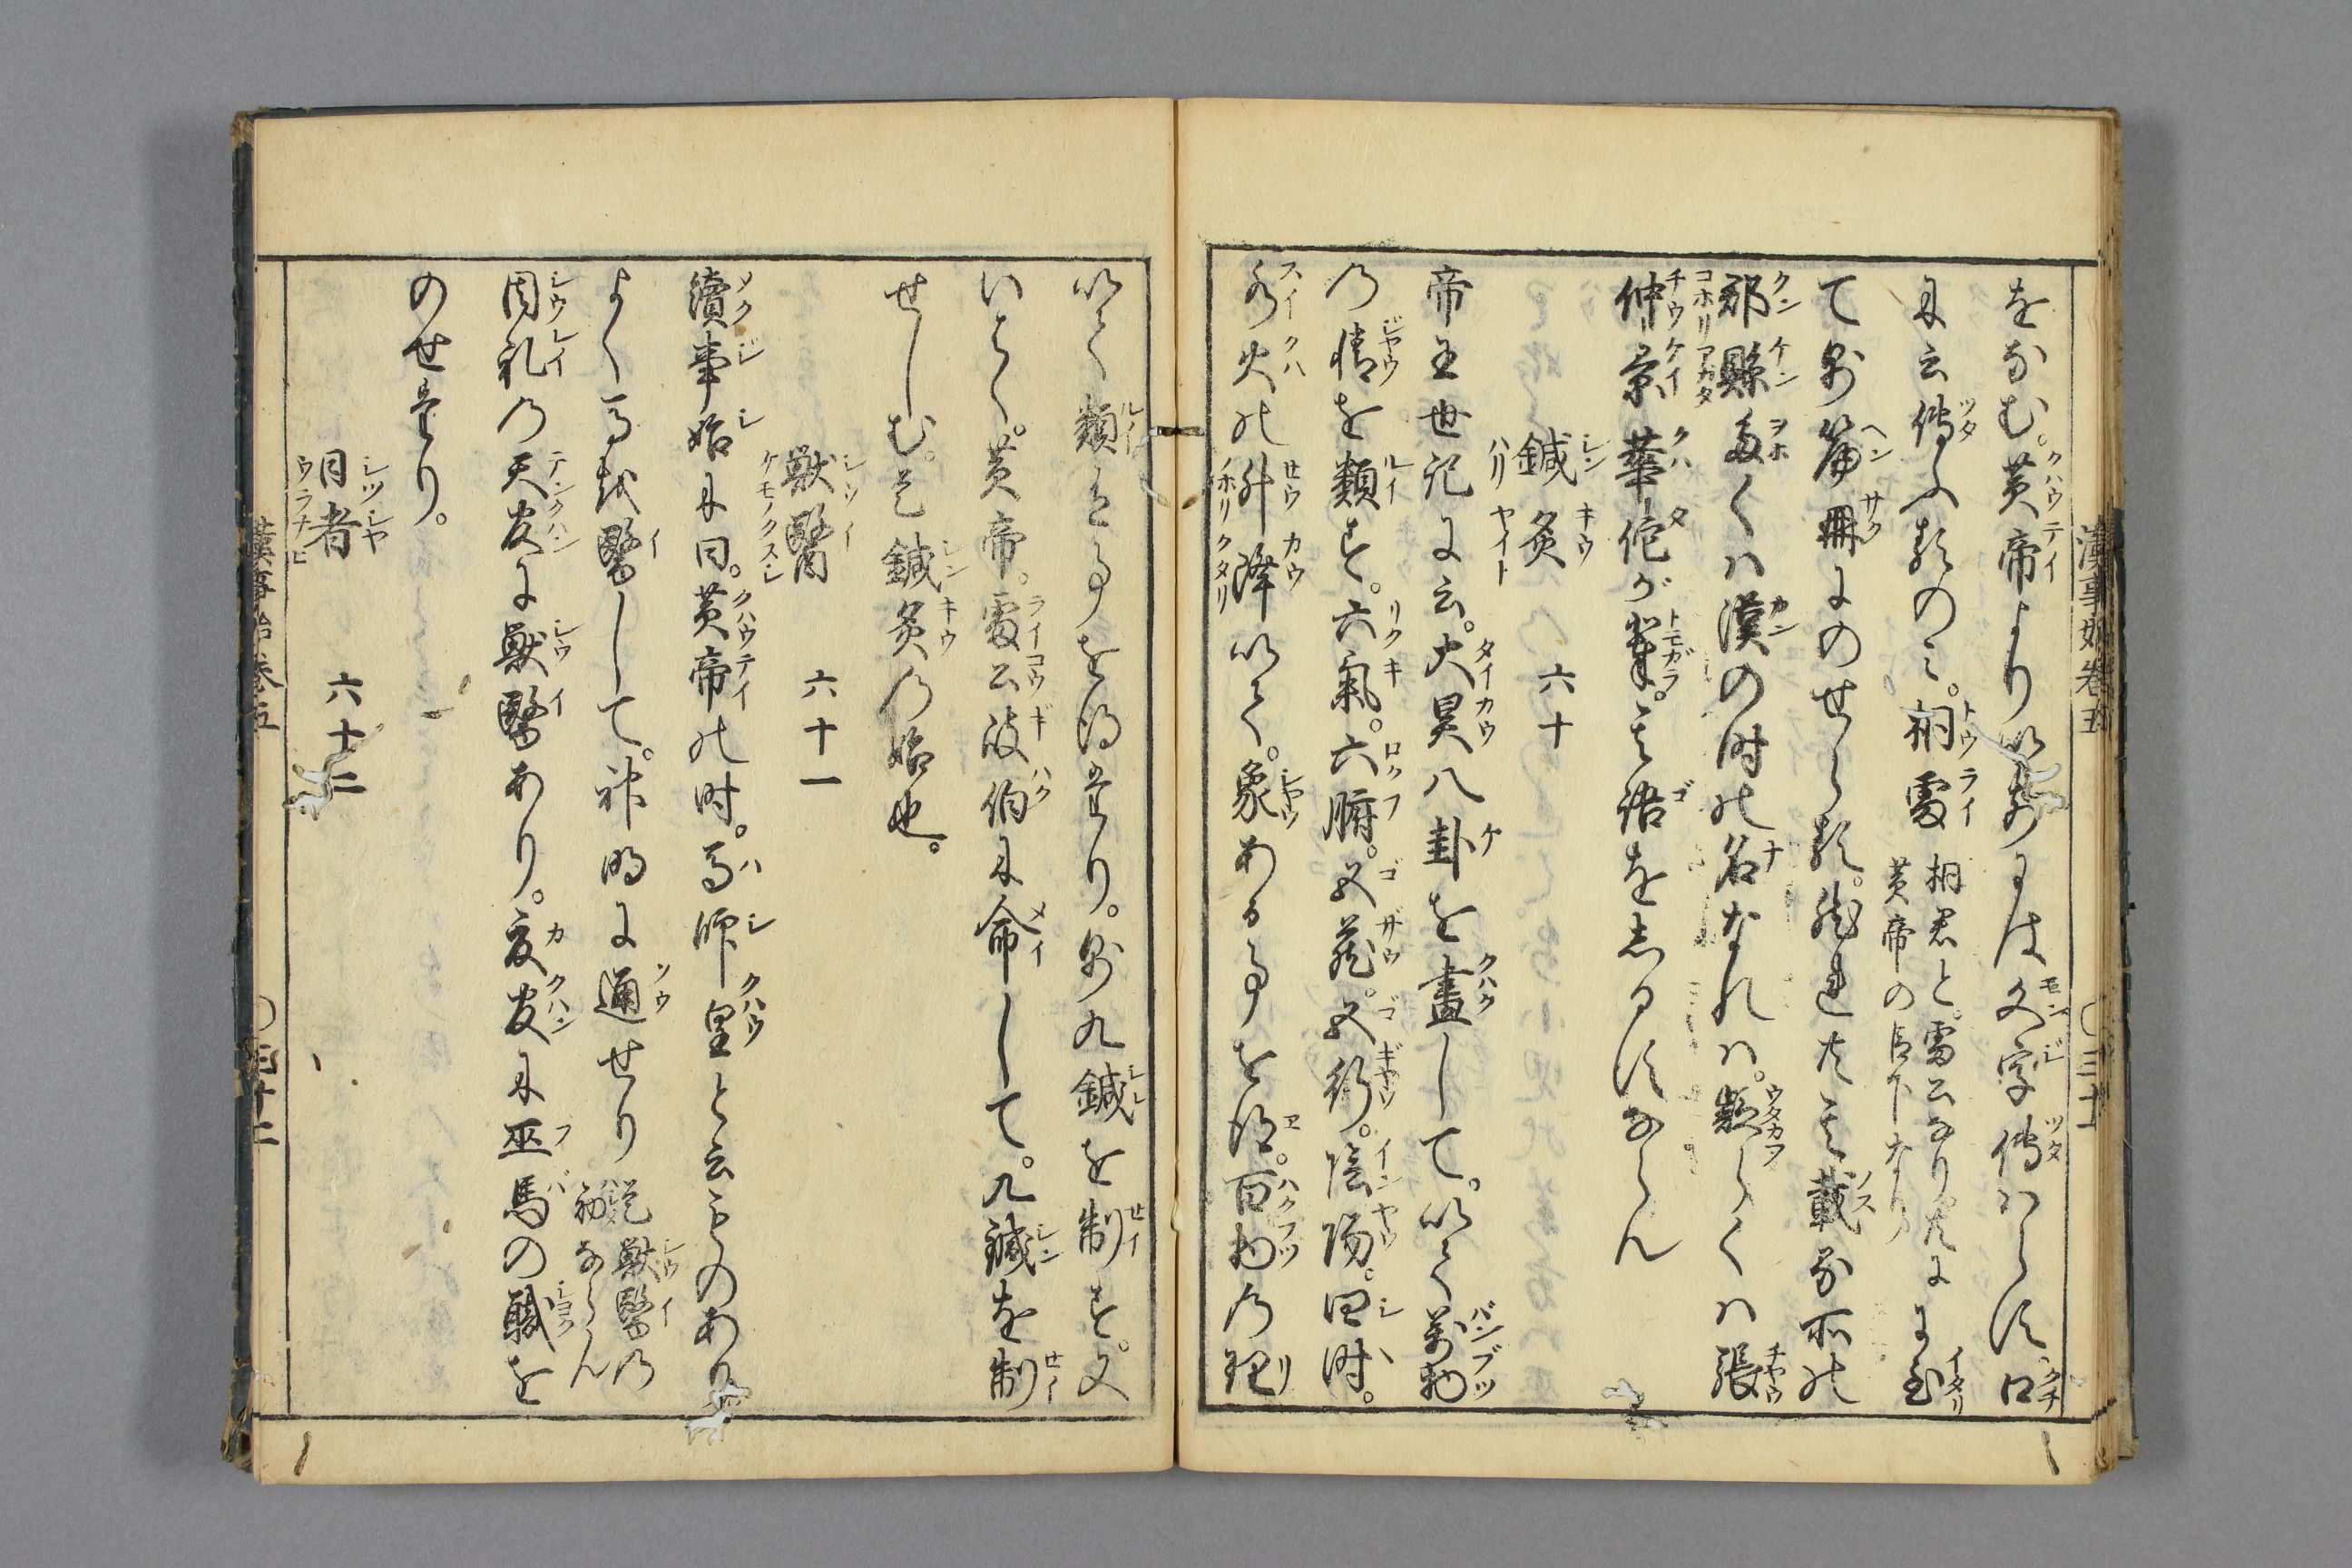 漢事始巻五 〇三十一
をなむ。黄帝より以前には文字傳ハらず。口
に云傳ふるのミ。桐雷桐君と。雷公なり。共に黄帝の臣下なりにいたり
て乃篇冊にのせらる。然レ共其載る所の
郡縣多くハ漢の時の名なれハ。疑らくハ張
仲景華佗が輩。其語を志るすならん
鍼灸 六十
帝王世記に云。大昊八卦を畫して。以て萬物
の情を類す。六氣。六腑。五蔵。五行。陰陽。四時。
水火の升降以て。象ある事を得。百物の理
以て類する事を得たり。乃九鍼を制す。又
いはく。黄帝。雷公岐伯に命して。九鍼を制
せしむ。是鍼灸の始也。
獣醫 六十一
續事始に曰。黄帝の時。馬師皇と云ものあり
よく馬を醫して。神明に通せり是獣醫の初ならん
周礼の天官に獣醫あり。夏官に巫馬の職を
のせたり。
日者 六十二
漢事始巻五 〇三十二